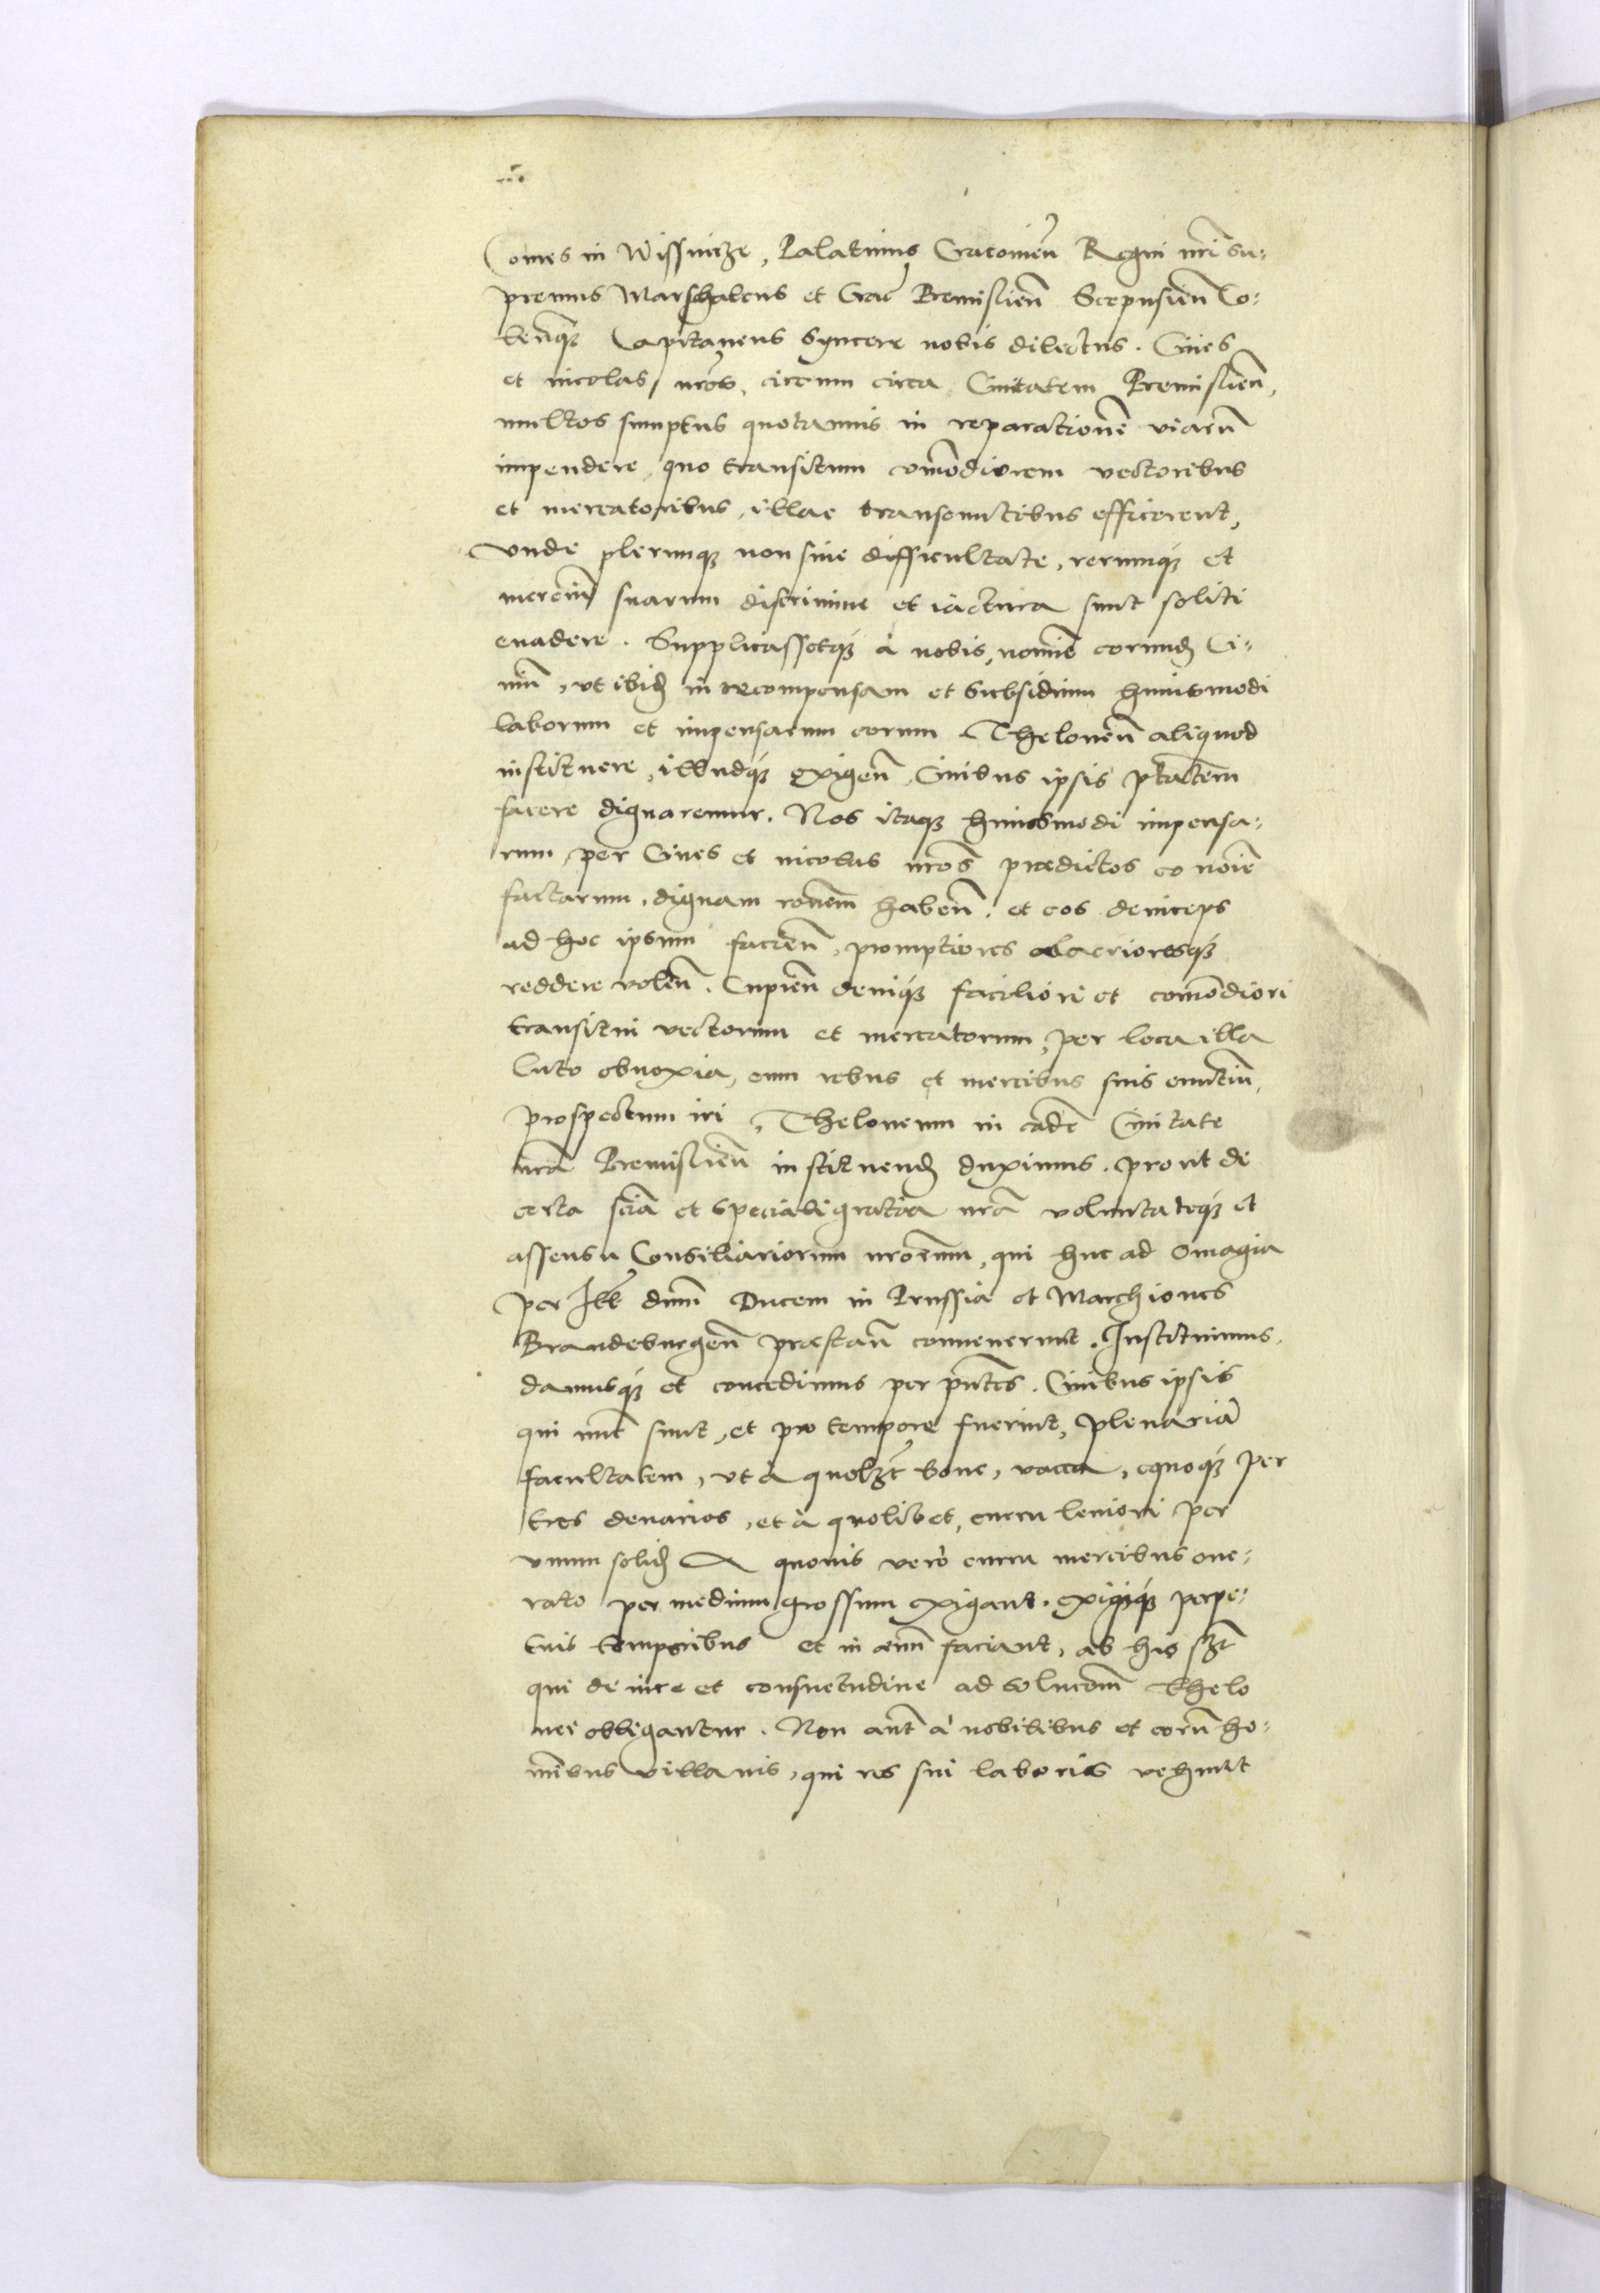 Comes in Wissnicze, Palatinus Cracovieñ Regni nri su-
premus Marschalcus et Grał Premislieñ Scepusieñ Co-
lenq₃ Capitaneus syncere nobis dilectus. Cives
et incolas nros, circum circa Civitatem Premislieñ,
multos sumptus quotannis in reparationē viarū
impendere, quo transitum cōmodiorem vectoribus
et mercatoribus, illac transeuntibus efficerent,
Vnde plerunq₃ non sine difficultate, rerumq₃ et
merciū suarum discrimine et iactura sunt soliti
euadere. Supplicassetq₃ à nobis, nomīe eorund Ci-
uiū, vt ibid in recompensam et subsidium huiusmodi
laborum et impensarum eorum Theloneū aliquod
instituere, illudq₃ exigeñ Ciuibus ipsis ptātem
facere dignaremur. Nos itaq₃ huiusmodi impensa-
rum, per Ciues et incolas nros prædictos eo noīe
factarum, dignam ronem habeñ, et eos deinceps
ad hoc ipsum facieñ, promptiores alacrioresq₃
reddere voleñ. Cupieñ deniq₃ faciliori et comōdiori
transitui vectorum et mercatorum, per loca illa
luto obnoxia, cum rebus et mercibus suis euntiū,
prospectum iri, Theloneum in eadē Ciuitate
nrā Premislieñ instituend duximus. prout de
certa sciā et speciali gratia nrā voluntateq₃ et
assensu Consiliariorum nrorum, qui huc ad omagia
per Ill dnum Ducem in Prussia et Marchiones
Brandeburgeñ præstañ conuenerunt. Instituimus,
damusq₃ et concedimus per pñtes. Ciuibus ipsis
qui nūc sunt, et pro tempore fuerint, plenariā
facultatem, vt à quolzt boue, vacca, equoq₃ per
tres denarios, et à quolibet, curru leuiori per
vnum solid A quouis verò curru mercibus one-
rato per medium grossum exigant. exigiq₃ perpe-
tuis temporibus et in æuū faciant, ab his szt
qui de iure et consuetudine ad solucōm Thelo
nei obligantur. Non aūt à nobilibus et eorū ho-
mībus villanis, qui res sui laboris vehunt